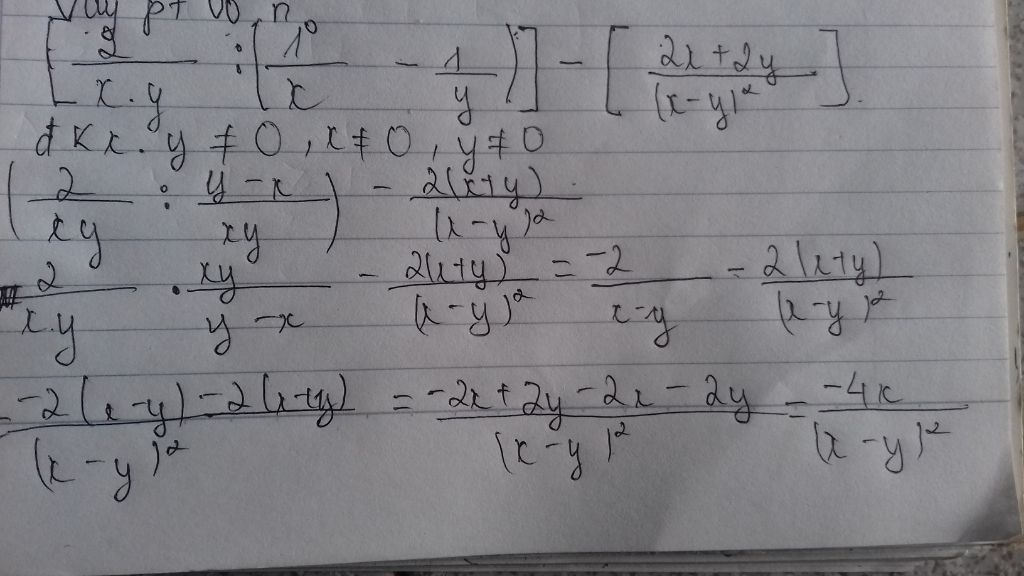 Vậy pt vô n
[2/(x.y) : (1/x - 1/y)] - [(2x+2y)/(x-y)²].
đk x.y ≠ 0, x ≠ 0, y ≠ 0
(2/(xy) : (y-x)/(xy)) - 2(x+y)/(x-y)²
2/(x.y) . xy/(y-x) - 2(x+y)/(x-y)² = -2/(x-y) - 2(x+y)/(x-y)²
(-2(x-y)-2(x+y))/(x-y)² = (-2x+2y-2x-2y)/(x-y)² = -4x/(x-y)²